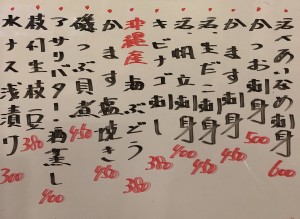 あいなめ刺身 600
かつお刺身 500
かます刺身 450
生だこ刺身 450
帆立刺身 400
キビナゴ刺し 380
沖縄産 海ぶどう 380
かます塩焼き 450
磯つぶ貝煮 450
アサリバター・酒蒸し 400
枝付生枝豆 380
水ナス浅漬り 300